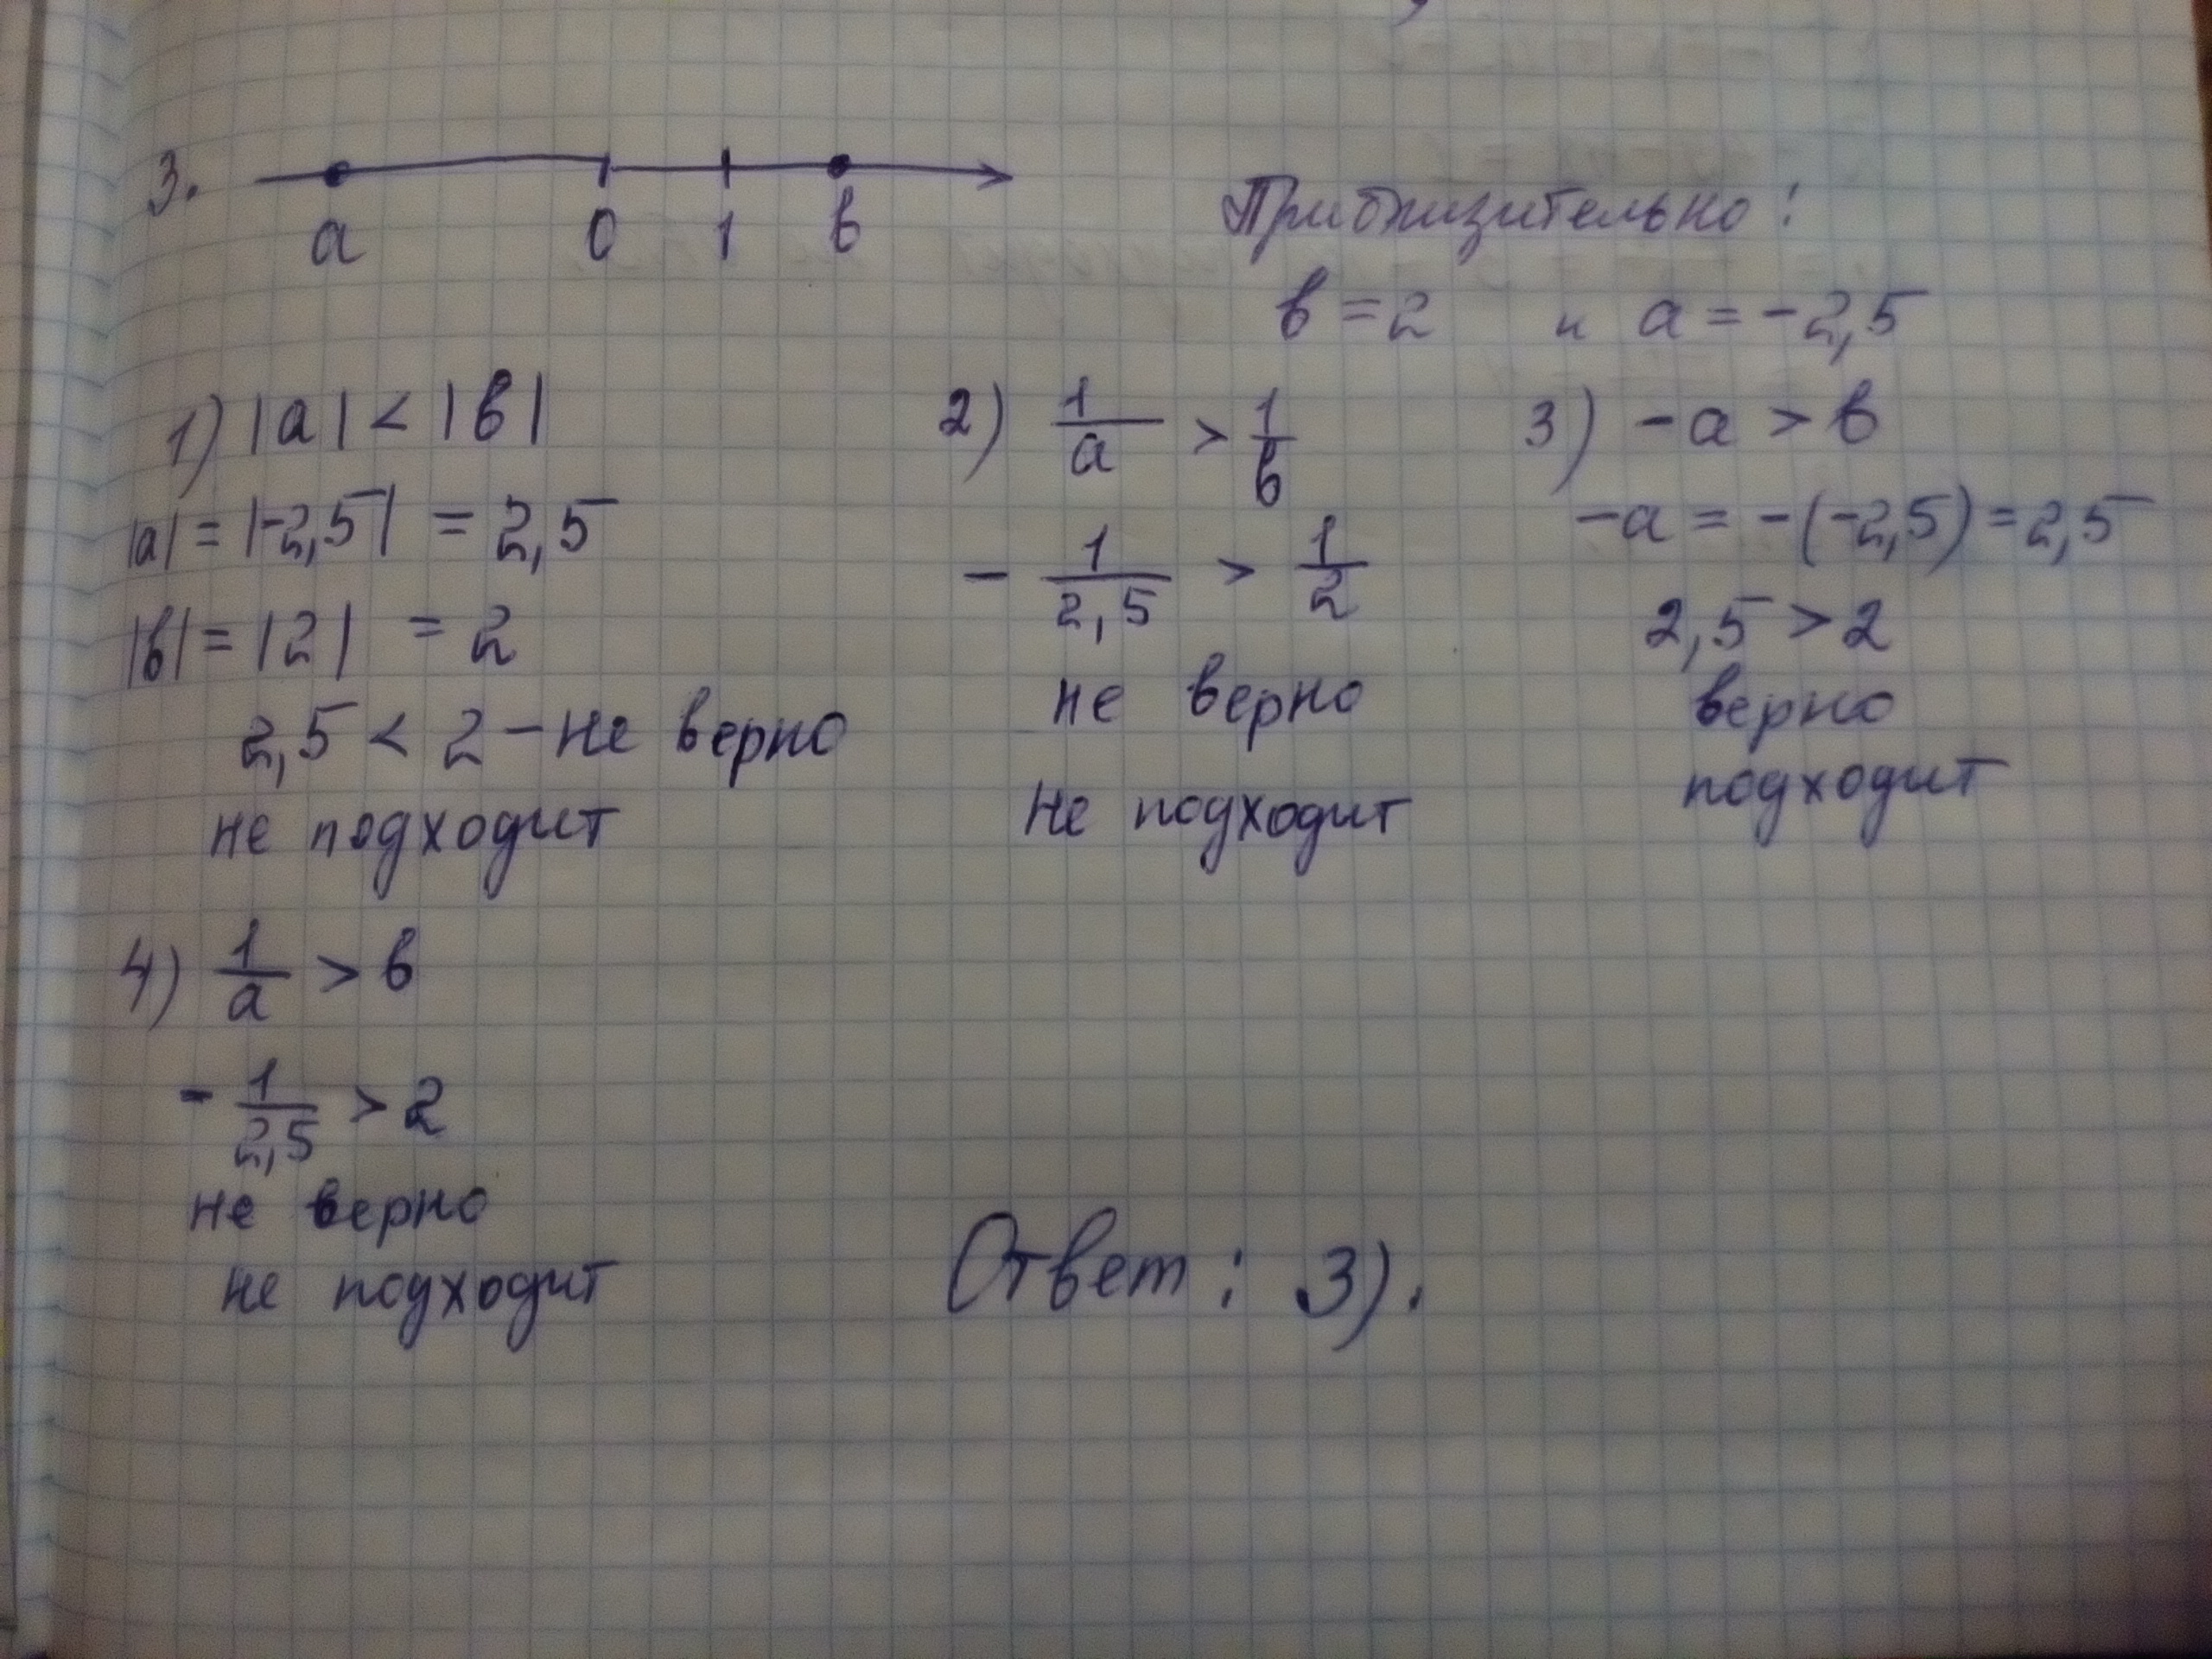 3.
a 0 1 в
Приблизительно:
в = 2 и a = -2,5
1) |a| < |в|
|a| = |-2,5| = 2,5
|в| = |2| = 2
2,5 < 2 - не верно
не подходит
2) 1/a > 1/в
- 1/2,5 > 1/2
не верно
не подходит
3) -a > в
-a = -(-2,5) = 2,5
2,5 > 2
верно
подходит
4) 1/a > в
- 1/2,5 > 2
не верно
не подходит
Ответ: 3).